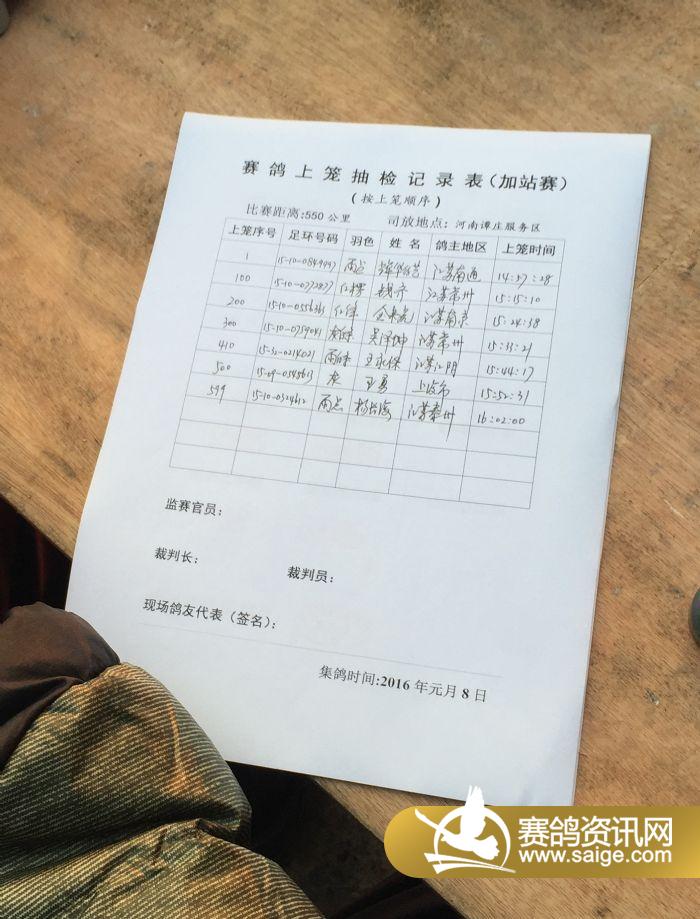 赛鸽上笼抽检记录表(加站赛)
(按上笼顺序)
比赛距离:550公里 司放地点:河南谭庄服务区
上笼序号 足环号码 羽色 姓名 鸽主地区 上笼时间
1 雨点 江苏南通 14:57:28
100 15-10-0772877 江苏常州 15:15:10
200 15-10-0556363 红绛 江苏南京 15:24:38
300 15-10-0759041 吴泽坤 江苏常州 15:33:21
410 15-32-0214021 王永保 江苏江阴 15:44:17
500 15-09-0545613 灰 王勇 上海市 15:52:31
599 15-10-0324612 雨点 杨长海 江苏泰州 16:02:00
监赛官员:
裁判长: 裁判员:
现场鸽友代表(签名):
集鸽时间:2016年元月8日
赛鸽资讯网
www.saige.com